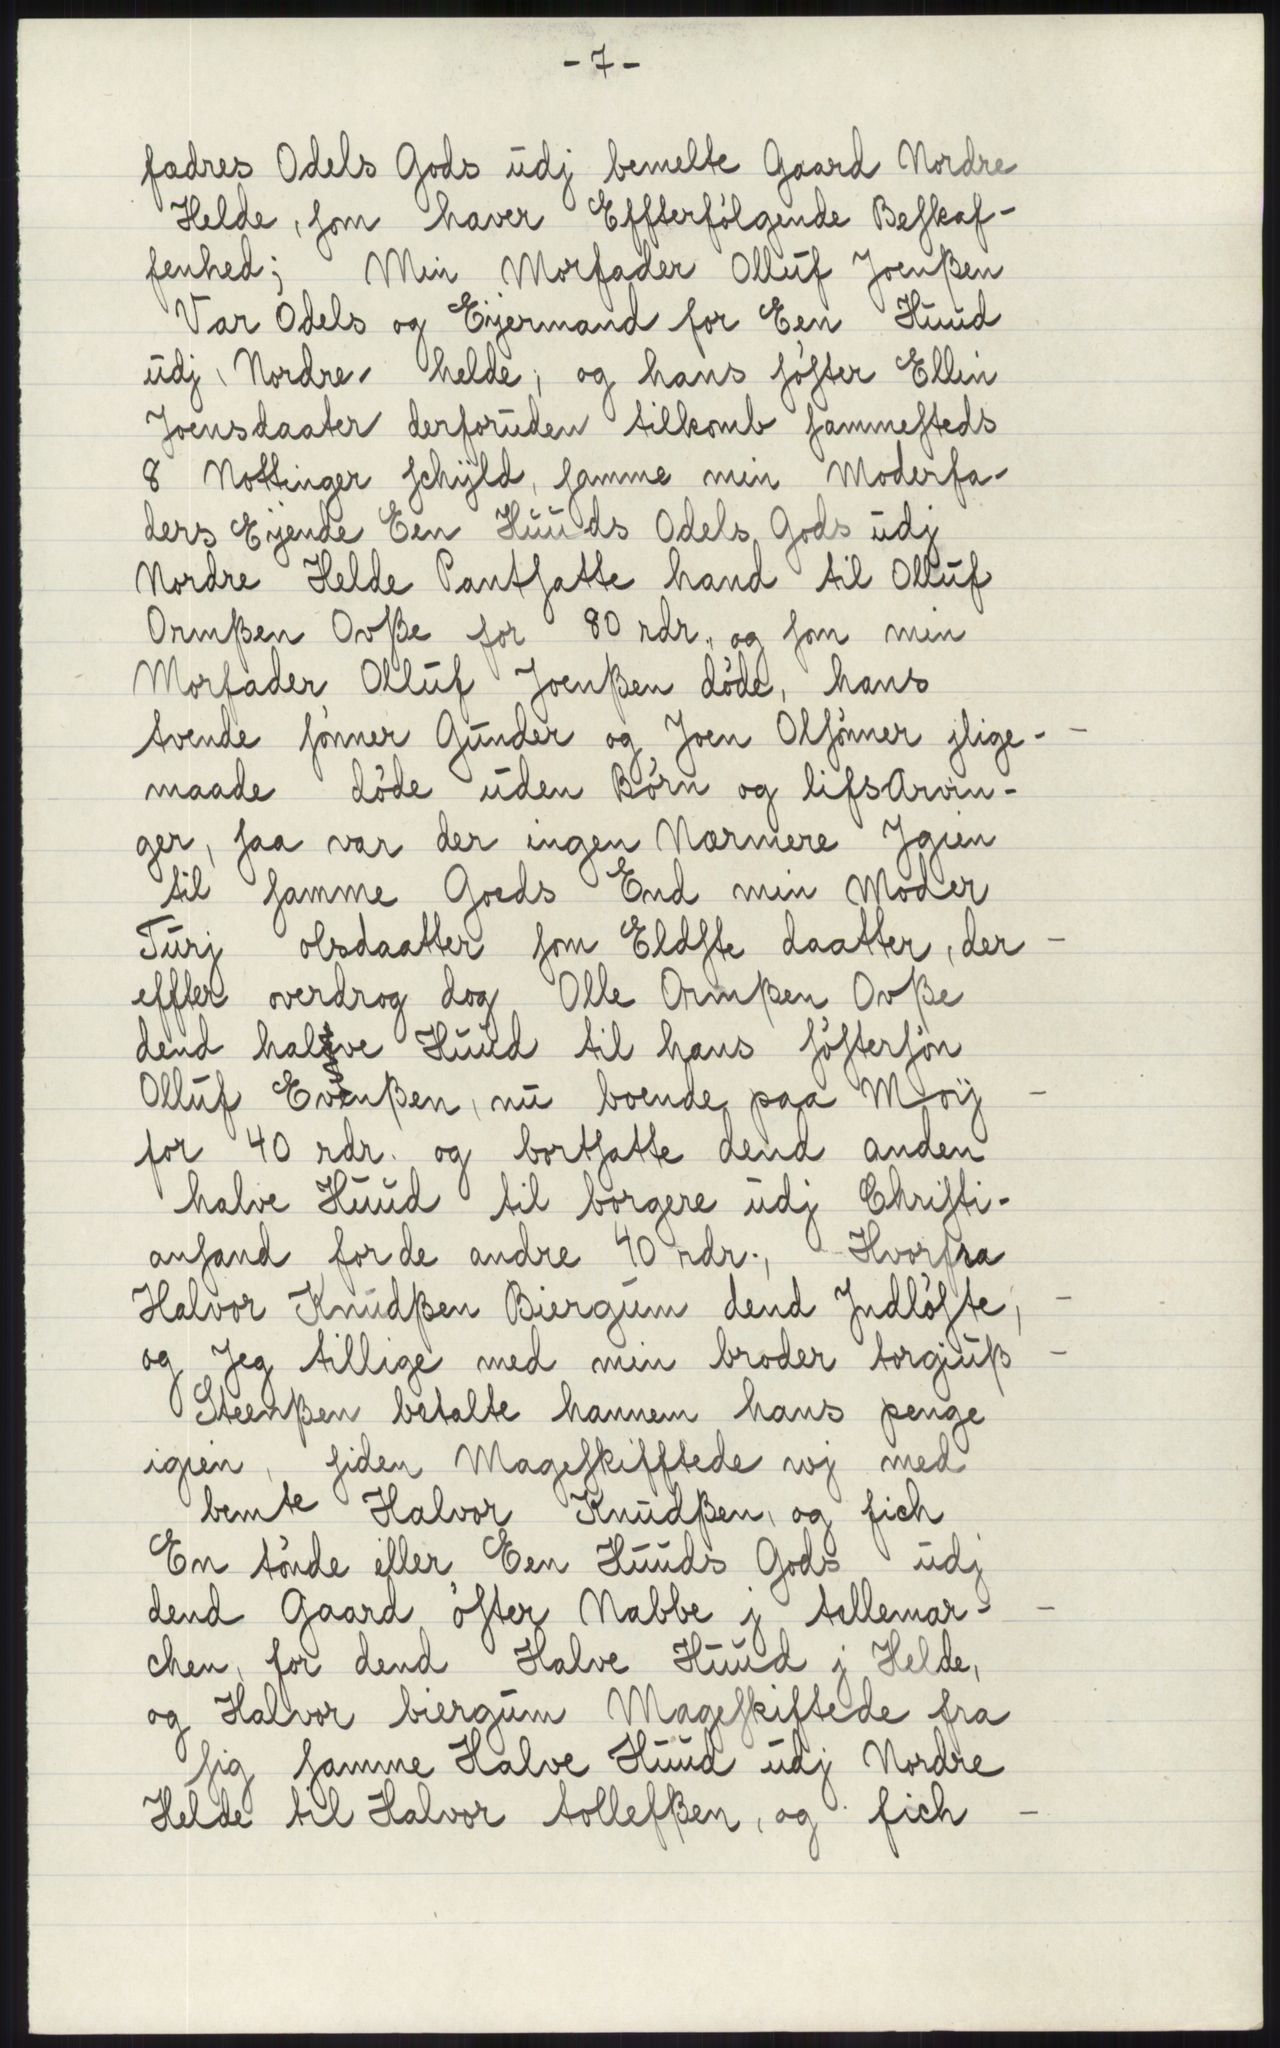 - 7 -
fædres Odels Gods udj bemelte Gaard Nordre
Helde, som haver Effterfölgende Beskaf-
fenhed; Min Morfader Olluf Joenßen
Var Odels og Eijermand for Een Huud
udj Nordre helde, og hans söster Ellin
Joensdaater derforuden tilkomb sammesteds
8 Nottinger schÿld, samme min Moderfa-
ders Eijende Een Huuds Odels Gods udj
Nordre Helde Pantsatte hand til Olluf
Ormßen Ovße for 80 rdr. og som min
Morfader Olluf Joenßen döde, hans
tvende sönner Gunder og Joen Olsönner jlige- -
maade döde uden Börn og lifsArvin-
ger, saa var der ingen Nærmere Jgien
til samme Goeds End min Moder
Turj olsdaatter som Eldste daatter, der -
effter overdrog dog Olle Ormßen Ovße
dend halve Huud til hans söstersön
Olluf Evenßen, nu boende paa Moÿ -
for 40 rdr. og bortsatte dend anden
halve Huud til borgere udj Christi-
ansand for de andre 40 rdr., Hvorfra
Halvor Knudßen Biergum dend Jndlöste, -
og Jeg tillige med min broder torgiuß -
Steenßen betalte hannem hans penge
igien, siden Mageskifftede wj med
bemte Halvor Knudßen, og fich
En tönde eller Een Huuds Gods udj
dend Gaard öster Nabbe j tellemar- -
chen, for dend Halve Huud j Helde,
og Halvor biergum Mageskiftede fra
sig samme Halve Huud udj Nordre
Helde til Halvor tollefßen, og fich -